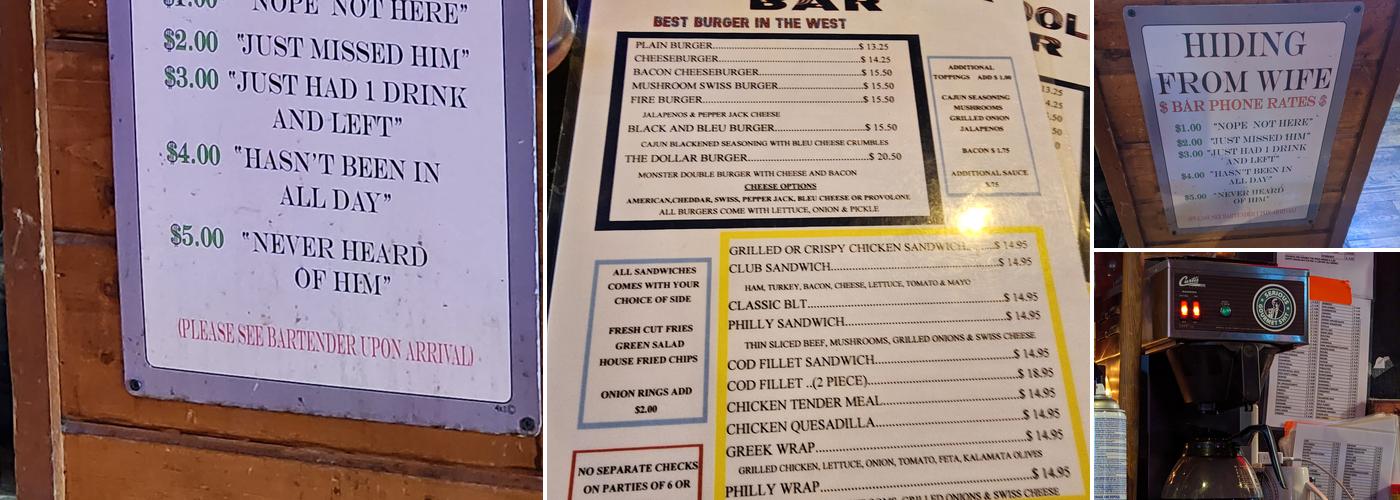 $1.00 "NOPE NOT HERE"
$2.00 "JUST MISSED HIM"
$3.00 "JUST HAD 1 DRINK
AND LEFT"
$4.00 "HASN'T BEEN IN
ALL DAY"
$5.00 "NEVER HEARD
OF HIM"
(PLEASE SEE BARTENDER UPON ARRIVAL)
BAR
BEST BURGER IN THE WEST
PLAIN BURGER $ 13.25
CHEESEBURGER $ 14.25
BACON CHEESEBURGER $ 15.50
MUSHROOM SWISS BURGER $ 15.50
FIRE BURGER $ 15.50
JALAPENOS & PEPPER JACK CHEESE
BLACK AND BLEU BURGER $ 15.50
CAJUN BLACKENED SEASONING WITH BLEU CHEESE CRUMBLES
THE DOLLAR BURGER $ 20.50
MONSTER DOUBLE BURGER WITH CHEESE AND BACON
CHEESE OPTIONS
AMERICAN,CHEDDAR, SWISS, PEPPER JACK, BLEU CHEESE OR PROVOLONE
ALL BURGERS COME WITH LETTUCE, ONION & PICKLE
ADDITIONAL
TOPPINGS ADD $ 1.00
CAJUN SEASONING
MUSHROOMS
GRILLED ONION
JALAPENOS
BACON $ 1.75
ADDITIONAL SAUCE
$.75
ALL SANDWICHES
COMES WITH YOUR
CHOICE OF SIDE
FRESH CUT FRIES
GREEN SALAD
HOUSE FRIED CHIPS
ONION RINGS ADD
$2.00
NO SEPARATE CHECKS
ON PARTIES OF 6 OR
GRILLED OR CRISPY CHICKEN SANDWICH $ 14.95
CLUB SANDWICH $ 14.95
HAM, TURKEY, BACON, CHEESE, LETTUCE, TOMATO & MAYO
CLASSIC BLT $ 14.95
PHILLY SANDWICH $ 14.95
THIN SLICED BEEF, MUSHROOMS, GRILLED ONIONS & SWISS CHEESE
COD FILLET SANDWICH $ 14.95
COD FILLET ..(2 PIECE) $ 18.95
CHICKEN TENDER MEAL $ 14.95
CHICKEN QUESADILLA $ 14.95
GREEK WRAP $ 14.95
GRILLED CHICKEN, LETTUCE, ONION, TOMATO, FETA, KALAMATA OLIVES
PHILLY WRAP $ 14.95
ONIONS & SWISS CHEESE
HIDING
FROM WIFE
$ BAR PHONE RATES $
$1.00 "NOPE NOT HERE"
$2.00 "JUST MISSED HIM"
$3.00 "JUST HAD 1 DRINK
AND LEFT"
$4.00 "HASN'T BEEN IN
ALL DAY"
$5.00 "NEVER HEARD
OF HIM"
(PLEASE SEE BARTENDER UPON ARRIVAL)
Curtis
SERIOUS
GOURMET SHIT